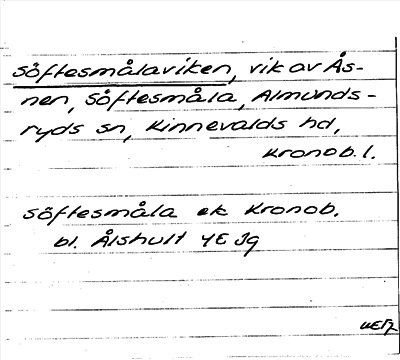 Söftesmålaviken, vik av Ås-
nen, Söftesmåla, Almunds-
ryds sn, Kinnevalds hd,
Kronob. l.
Söftesmåla ek Kronob.
bl. Ålshult 4E 3g